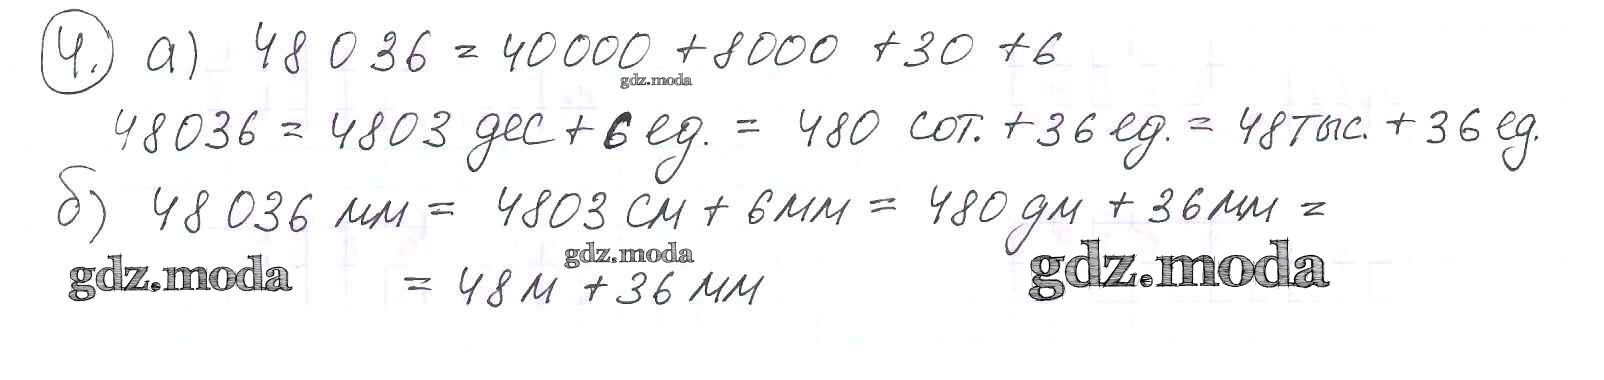 4. а) 48 036 = 40000 + 8000 + 30 + 6
gdz.moda
48036 = 4803 дес + 6 ед. = 480 сот. + 36 ед. = 48 тыс. + 36 ед.
б) 48 036 мм = 4803 см + 6 мм = 480 дм + 36 мм =
gdz.moda gdz.moda gdz.moda
= 48 м + 36 мм